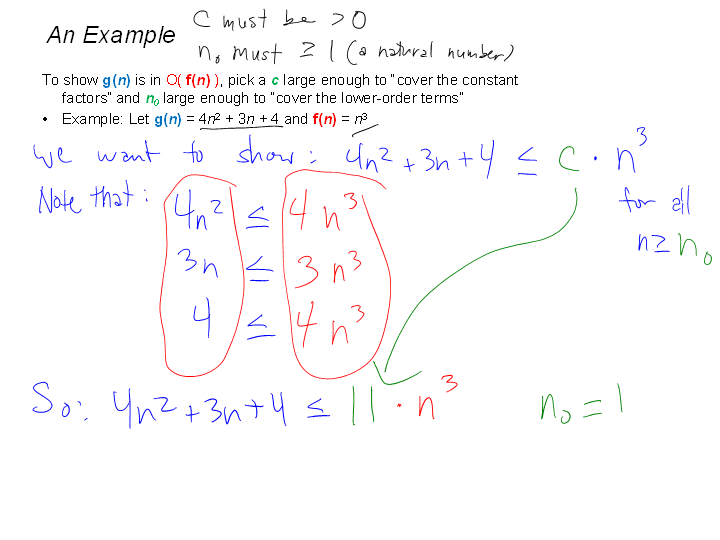 C must be > 0
An Example
n₀ must ≥ 1 (a natural number)
To show g(n) is in O( f(n) ), pick a c large enough to “cover the constant
factors” and n₀ large enough to “cover the lower-order terms”
• Example: Let g(n) = 4n² + 3n + 4 and f(n) = n³
We want to show: 4n² + 3n + 4 ≤ C · n³
for all
n ≥ n₀
Note that: 4n² ≤ 4n³
3n ≤ 3n³
4 ≤ 4n³
So: 4n² + 3n + 4 ≤ 11 · n³
n₀ = 1